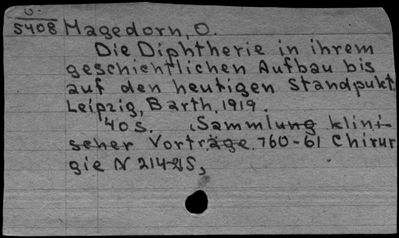 5408 Magedorn, O.
Die Diphtherie in ihrem
geschichtlichen Aufbau bis
auf den heutigen Standpukt
Leipzig, Barth, 1919.
40 S. (Sammlung klini-
scher Vorträge. 760-61 Chirur
gie N 214